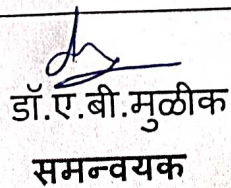 डॉ.ए.बी.मुळीक
समन्वयक